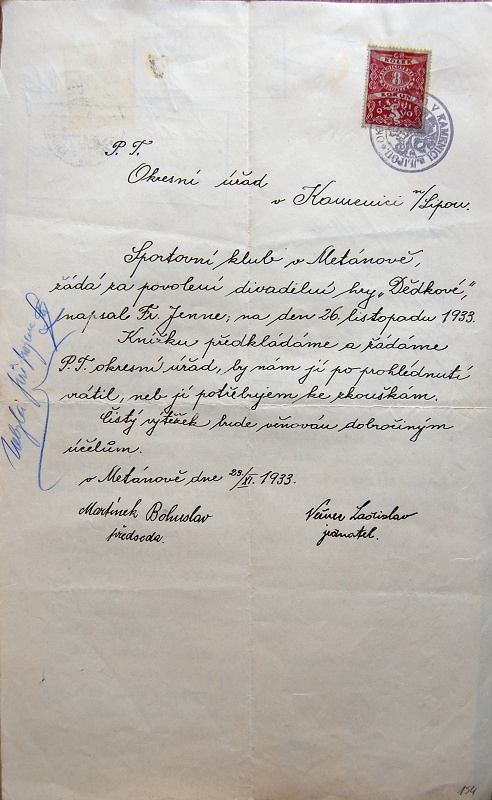 ČS.
KOLEK
8
KORUN
V KAMENICI n./LIPOU
P. T.
Okresní úřad
v Kamenici n/Lipou.
Sportovní klub v Metánově,
řádá za povolení divadelní hry „Dědkové",
napsal Fr. Jenne; na den 26. listopadu 1933.
Knížku předkládáme a řádáme
P. T. okresní úřad, by nám jí po prohlédnutí
vrátil, neb jí potřebujem ke zkouškám.
Čistý výtěžek bude věnován dobročiným
účelům.
v Metánově dne 23/XI. 1933.
Martínek Bohuslav
předseda.
Ladislav
jednatel.
154